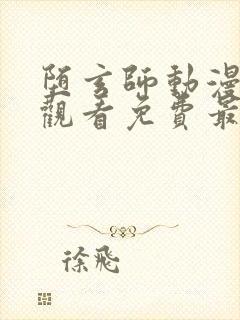 陌玄師動漫
觀看免費最
徐飛